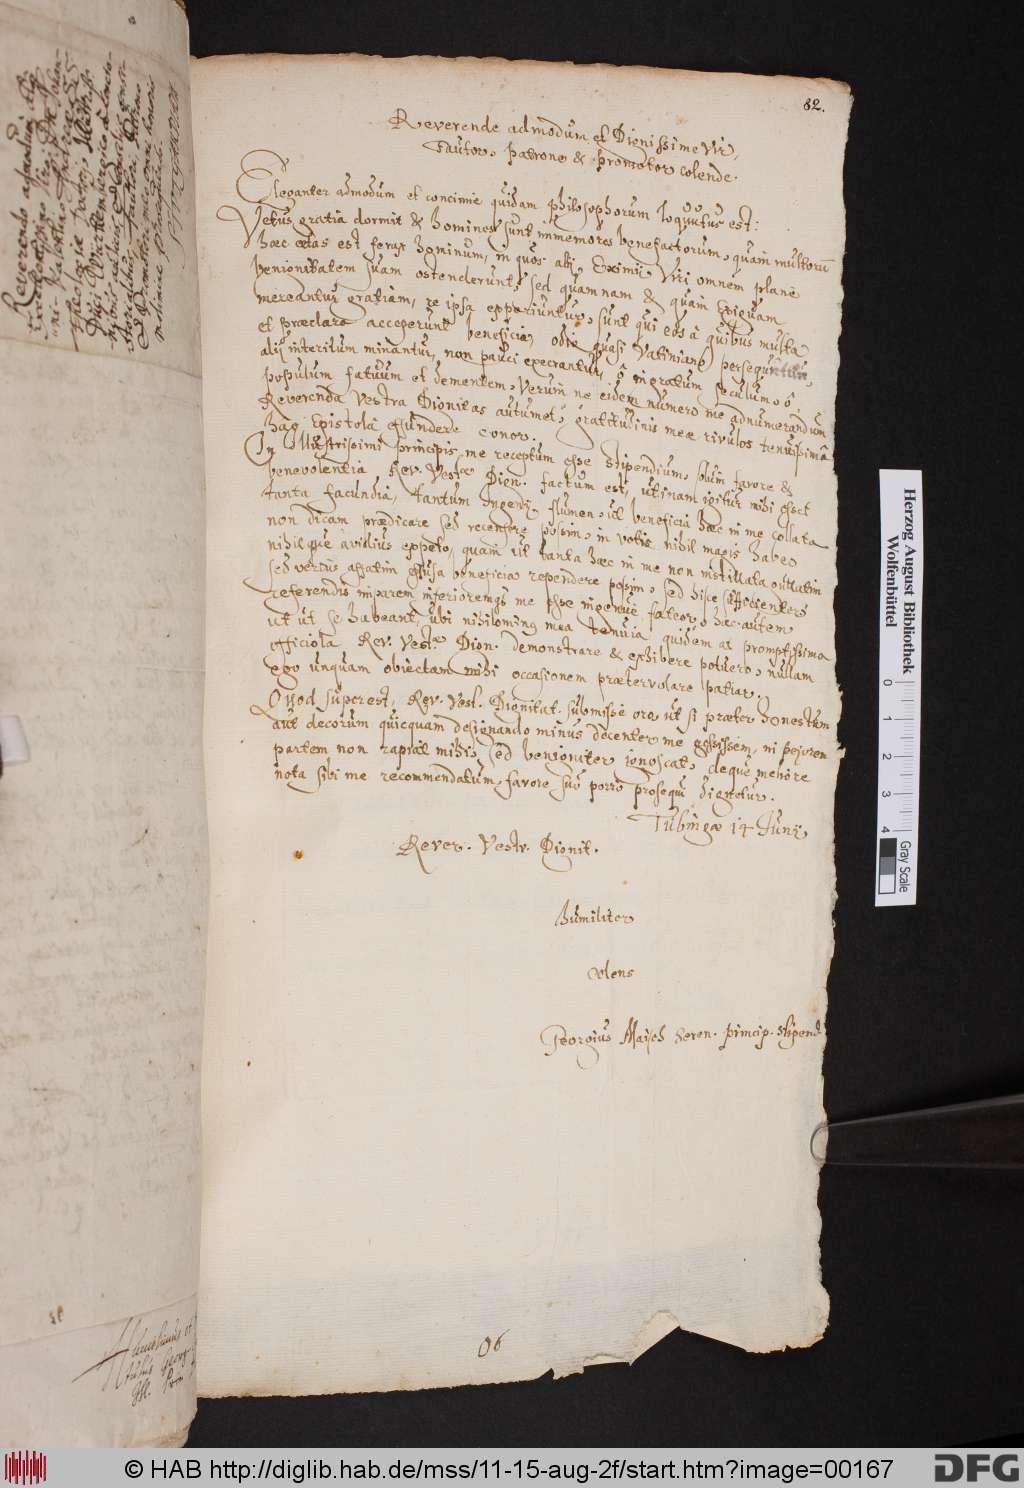 82.
Reverende admodum et Dignissime Vir,
Fautor, patrone & promotor colende.
Eleganter admodum et concinne quidam philosophorum loquutus est:
Vetus gratia dormit & homines sunt immemores benefactorum, quàm multorū
haec aetas est ferax hominum, in quos alij Eximii Viri omnem planè
benignitatem suam ostenderunt, sed quamnam & quàm Exiguam
mereantur gratiam, re ipsa experiuntur, sunt qui eos à quibus multa
et praeclara acceperunt beneficia, odio quasi Vatiniano persequuntur,
alij interitum minantur, non pauci execrantur, ô ingratum seculum, ô
populum fatuum et dementem, Verùm ne eidem numero me adnumerandum
Reverenda Vestra Dignitas autumet, gratitudinis meae rivulos tenuissimâ
hac Epistolâ effundere conor.
In Illustrissimi principis me receptum esse stipendium, solùm favore &
benevolentia Rev. Vestrae Dign. factum est, utinam igitur mihi esset
tanta facundia, tantum Ingenij flumen, ut beneficia haec in me collata
non dicam praedicare sed recensere possim, in votis nihil magis habeo
nihilque avidius expeto, quàm ut tanta haec in me non instillata guttatim
sed verius affatim effusa beneficia rependere possim, sed hisce sufficienter
referendis imparem inferioremque me esse ingenuè fateor, hac autem
ut ut se habeant, ubi nihilominus mea tenuia quidem at promptissima
officiola Rev. Vestrae Dign. demonstrare & exhibere potuero, nullam
ego unquam obiectam mihi occasionem praetervolare patiar.
Quod superest, Rev. Vest. Dignitat. submissè oro, ut si praeter honestum
aut decorum quicquam designando minus decenter me gessissem, in pejorem
partem non rapiat mihi, sed benigniter ignoscat, deque meliore
nota sibi me recommendatum, favore suo porrò prosequi dignetur.
Tubingae 14 Junij
Rever. Vestr. Dignit.
humiliter
colens
Georgius Maisch Heren. princip. stipend.
06
Herzog August Bibliothek
Wolfenbüttel
0 1 2 3 4
Gray Scale
© HAB http://diglib.hab.de/mss/11-15-aug-2f/start.htm?image=00167
DFG